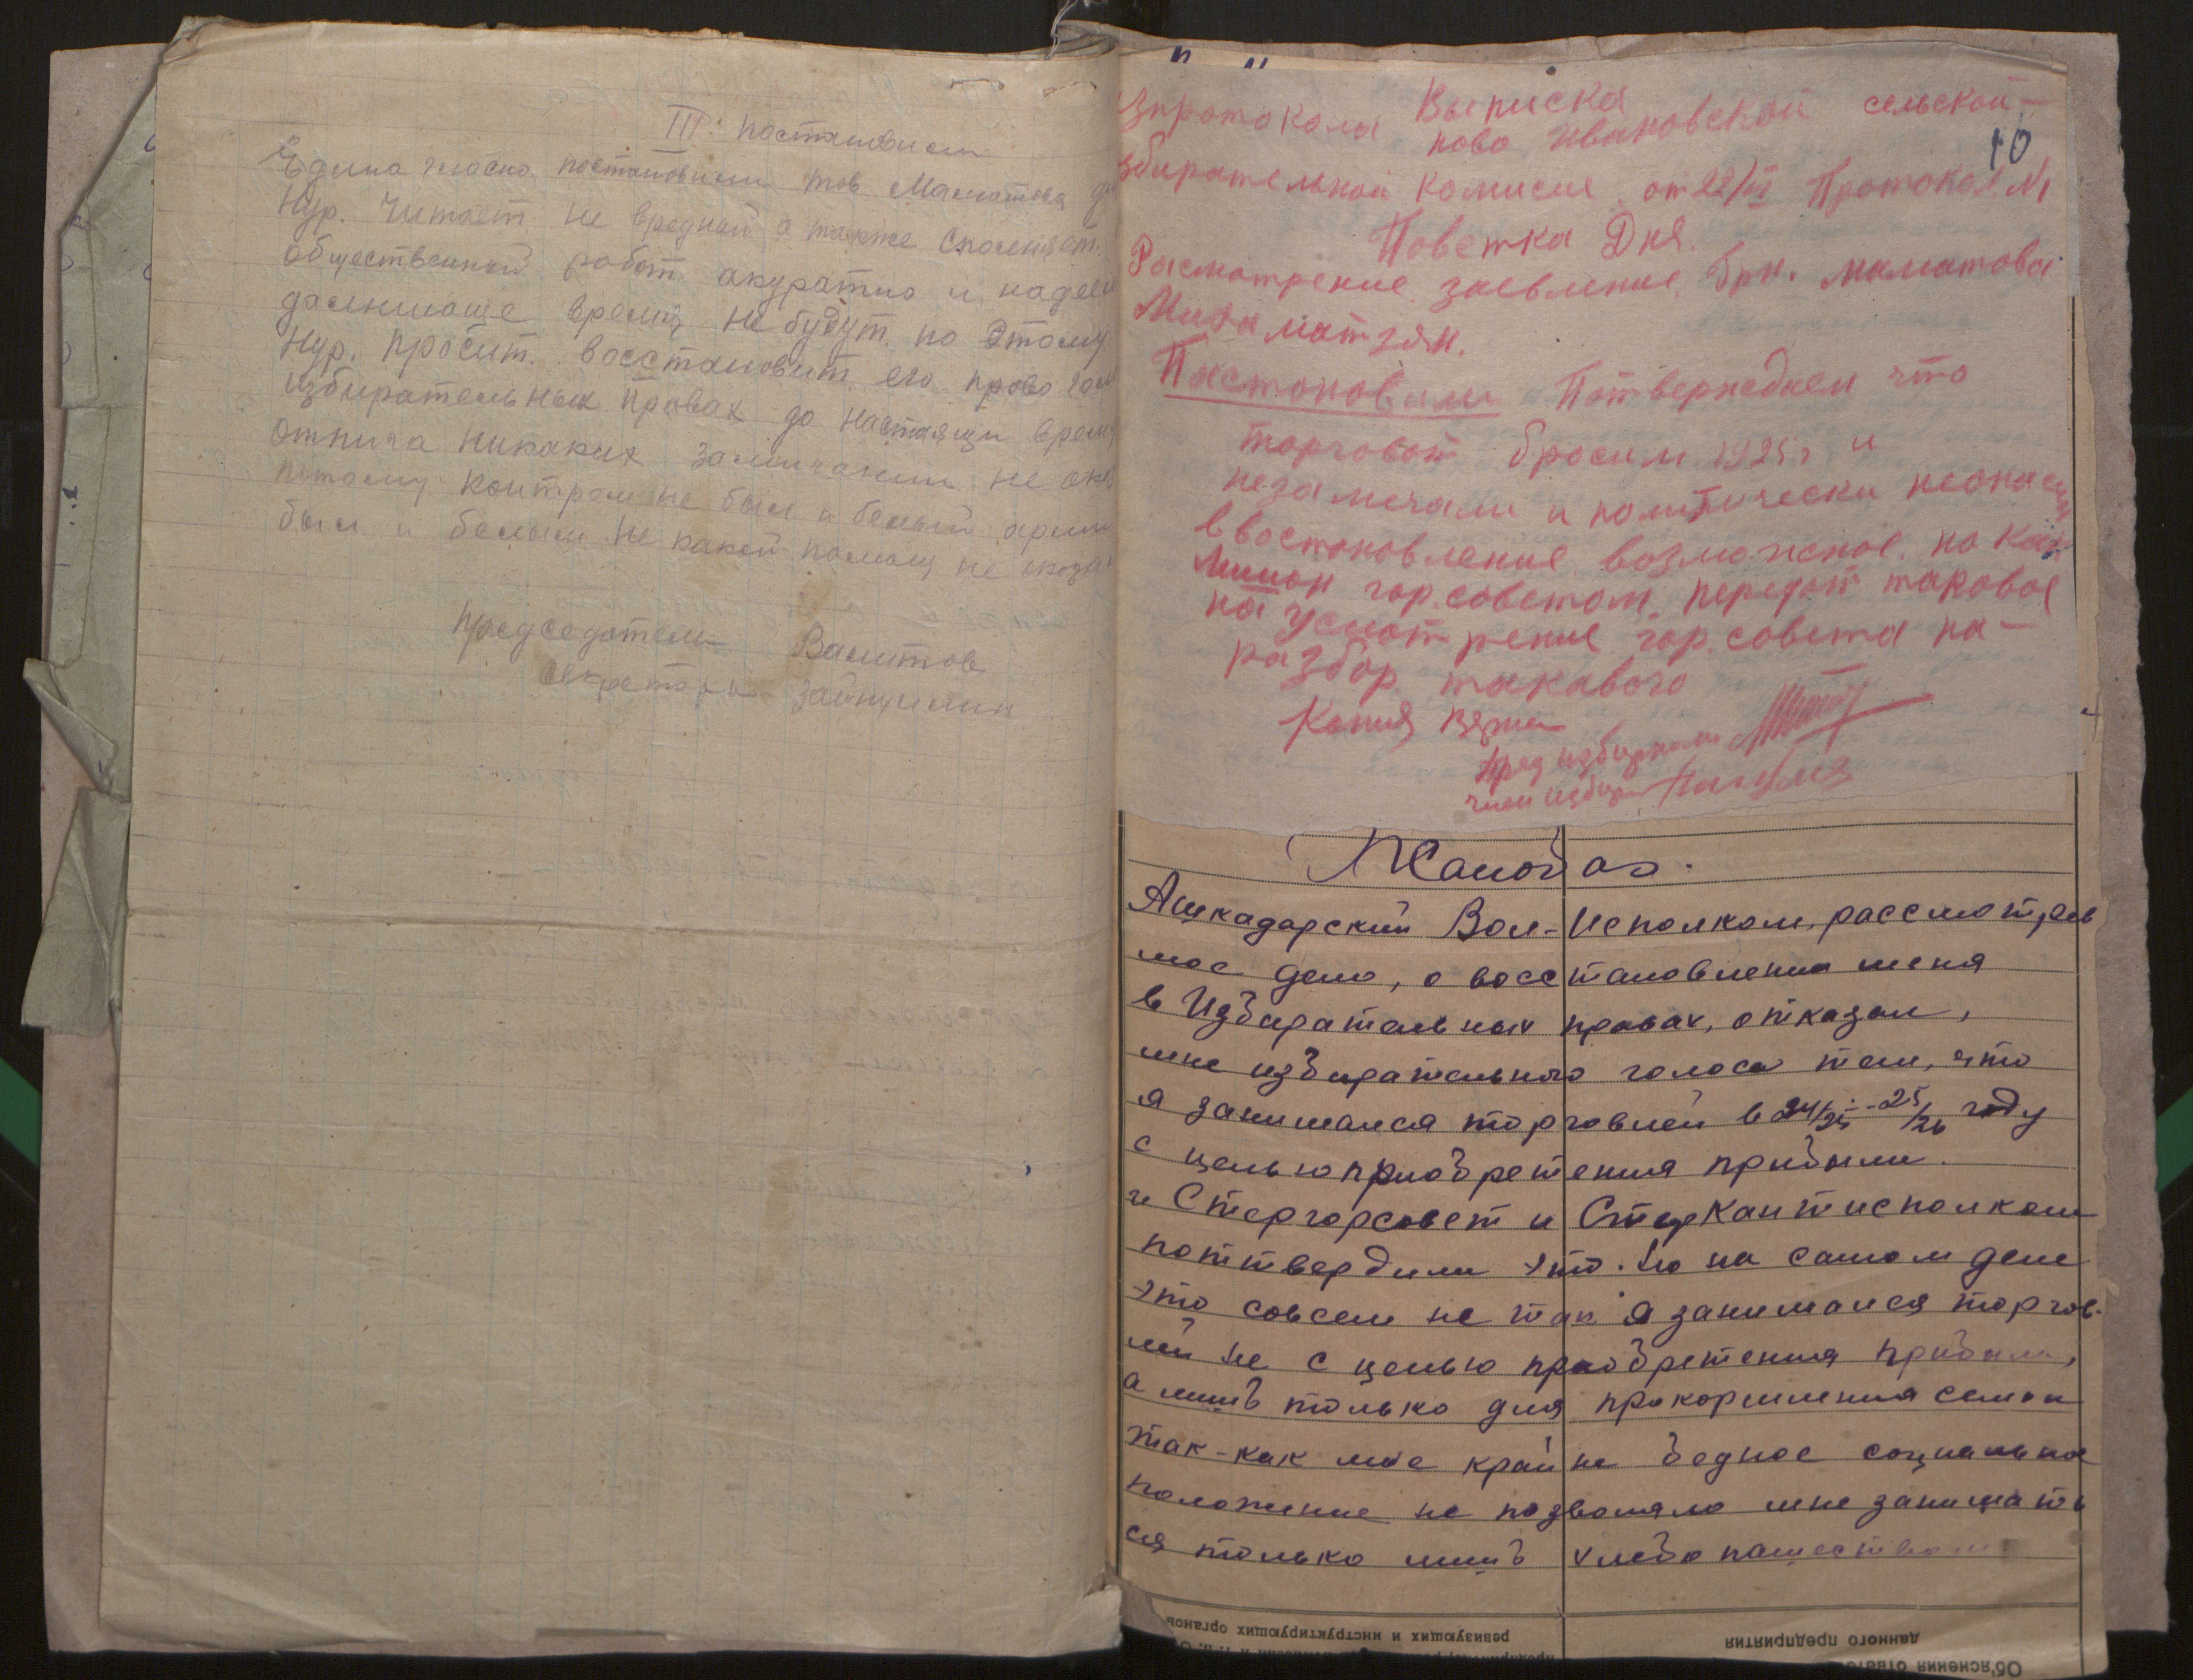 III: постановили
Едино гласно постановили тов. Маматова
Нур. Читает не вредной а также
общественной работ акуратно и
дальнюще время не будут по этому
Нур. просит. восстановит его право
избирательных правах до настоящи время
никаких замичании не
потому контром не был и белый
был и белым не какой помощ не
председатель Валитов
секретарь
10
Выписка
изпротокола ново Ивановской сельской
збирательной комисие от 22/III Протокол №1
Поветка Дня.
Расмотрение заевление брн. маматова
Мухаматзян.
Постоновили Потверждаем что
торговат бросили 1925г и
незамечали и политически
в востоновление возможное по
гор.советом. передат таковое
на усмотрение гор.совета на-
разбор такавого
Копия
пред избиркома
член избир
Жалоба.
Ашкадарский Вол-Исполком, рассмотрев
мое дело, о восстановлении меня
в Избирательных правах, отказал,
мне избирательного голоса тем, что
я занимался торговлей в 24/25-25/26 году
с целью приобретения прибыли.
и Стергорсовет и СтерКантисполком
поттвердили это. Но на самом деле
это совсем не так я занимался торгов-
лей не с целью приобретения прибыли,
а лишь только для прокормления семьи
так-как мое крайне бедное социальное
положение не позволяло мне занимать
ся только лишь хлебопашеством
ревизующих и инструктирующих органов
данного предприятия
Об'яснения